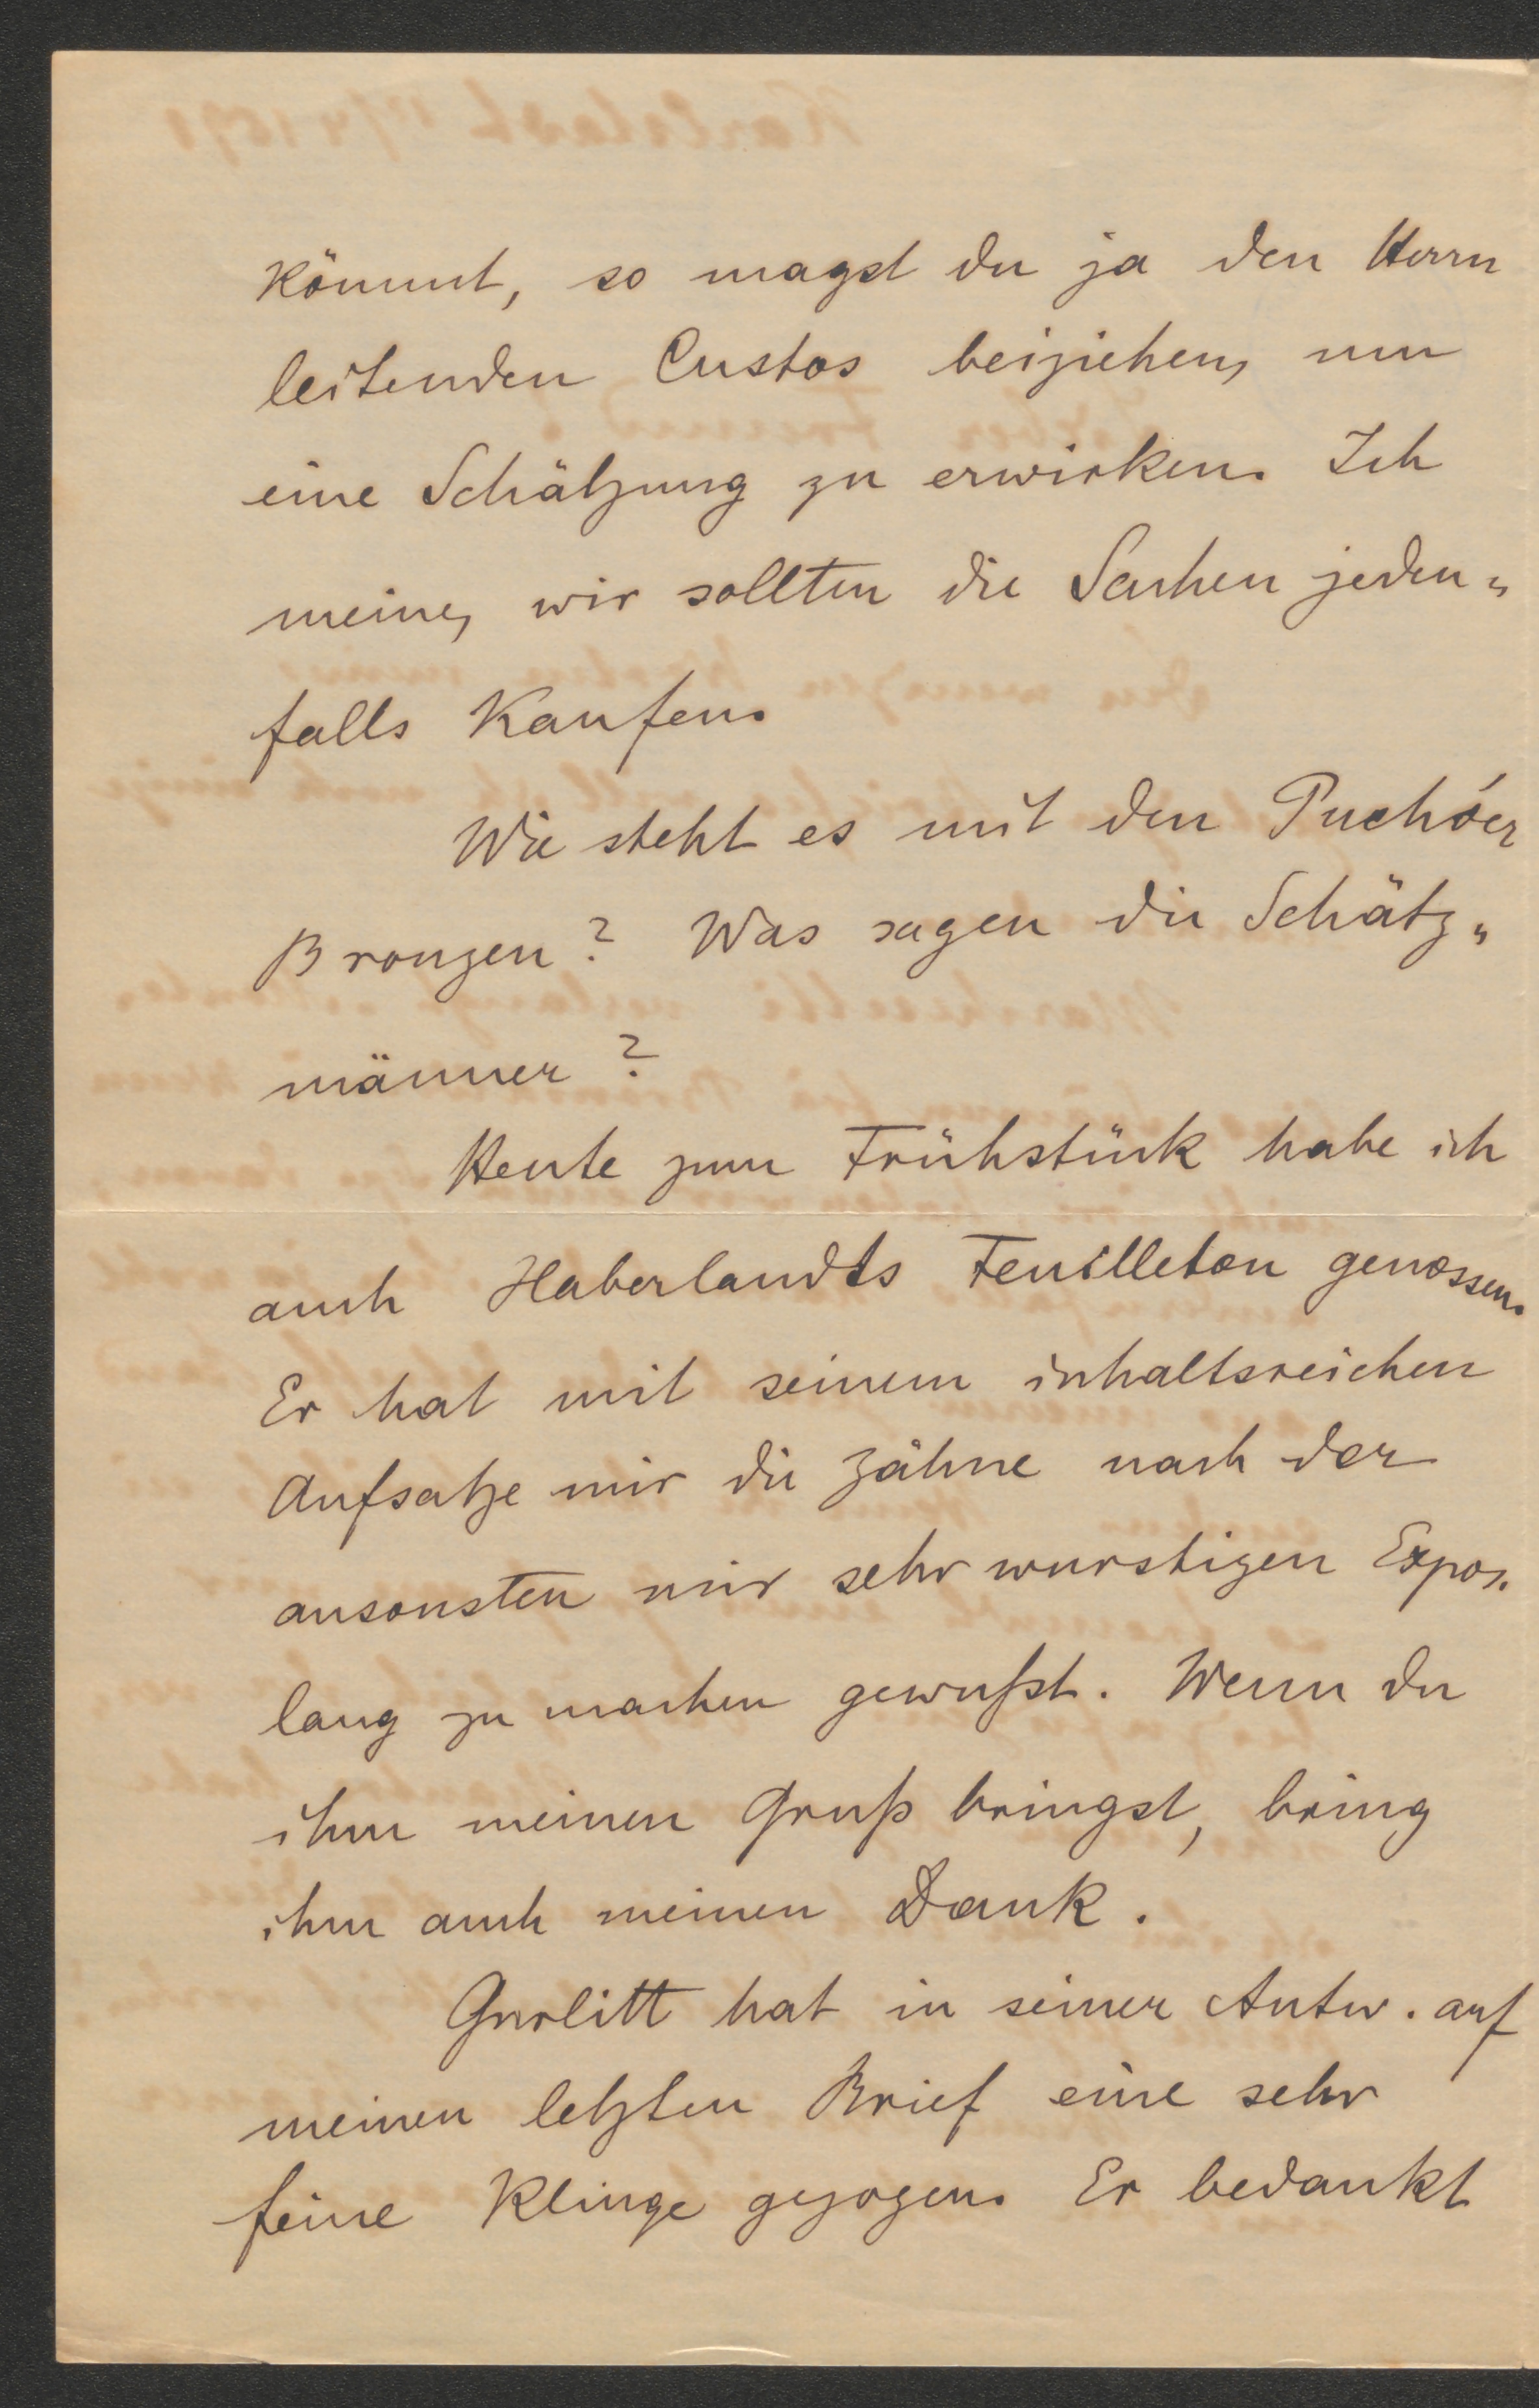 kömmt, so magst du ja den Herrn
leitenden Custos beiziehen, um
eine Schätzung zu erwirken. Ich
meine, wir sollten die Sachen jeden„
falls kaufen.
Wie steht es mit den Puchóer
Bronzen? Was sagen die Schätz„
männer?
Heute zum Frühstück habe ich
auch Haberlandts Feuilleton genossen.
Er hat mit seinem inhaltsreichen
Aufsatze mir die Zähne nach der
ansonsten mir sehr wurstigen Expos.
lang zu machen gewußt. Wenn du
ihm meinen Gruß bringst, bring
ihm auch meinen Dank.
Gurlitt hat in seiner Antw. auf
meinen letzten Brief eine sehr
feine Klinge gezogen. Er bedankt